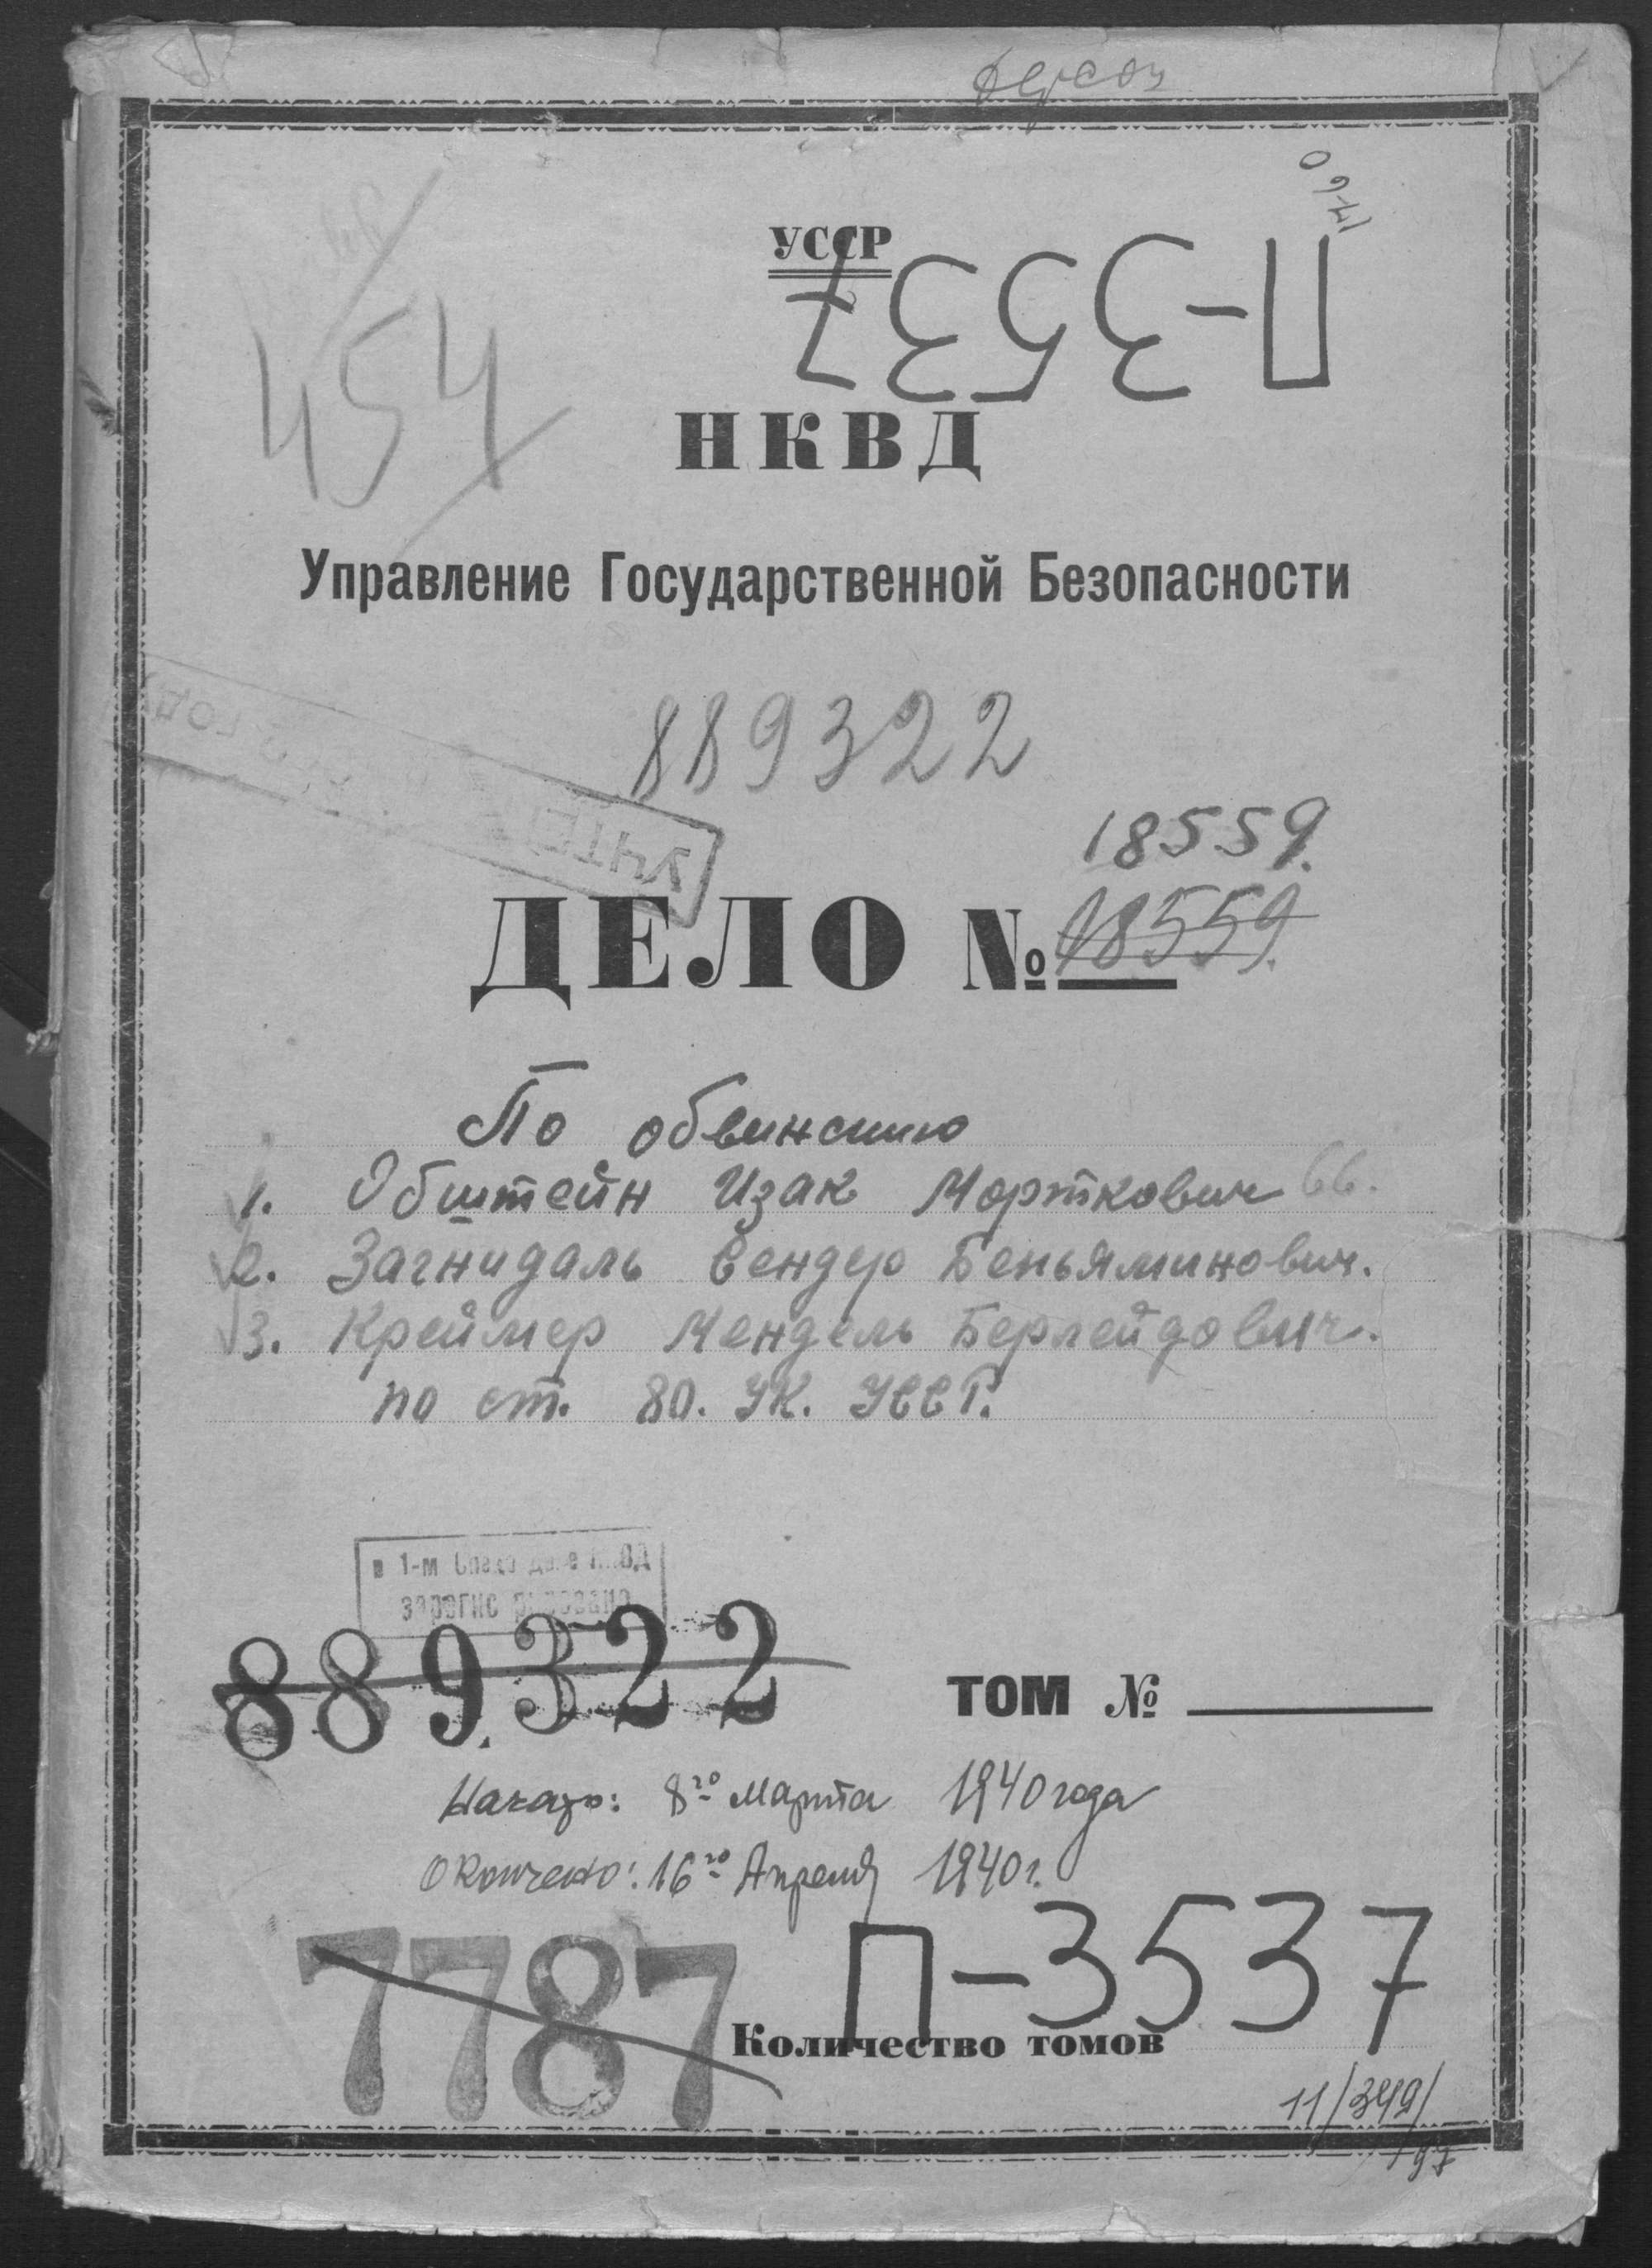 454
УССР
П-3537
НКВД
Управление Государственной Безопасности
889322
18559.
ДЕЛО № 18559.
По обвинению
1. Обштейн Изак Морткович 66.
2. Загнидаль Сендер Беньяминович.
3. Креймер Мендель Берлейдович.
по ст. 80. УК. УССР.
в 1-м Спецотделе НКВД
зарегистрировано
889322
ТОМ №
Начато: 8го Марта 1940 года
Окончено: 16го Апреля 1940 г.
7787
П-3537
Количество томов
11/349/
97